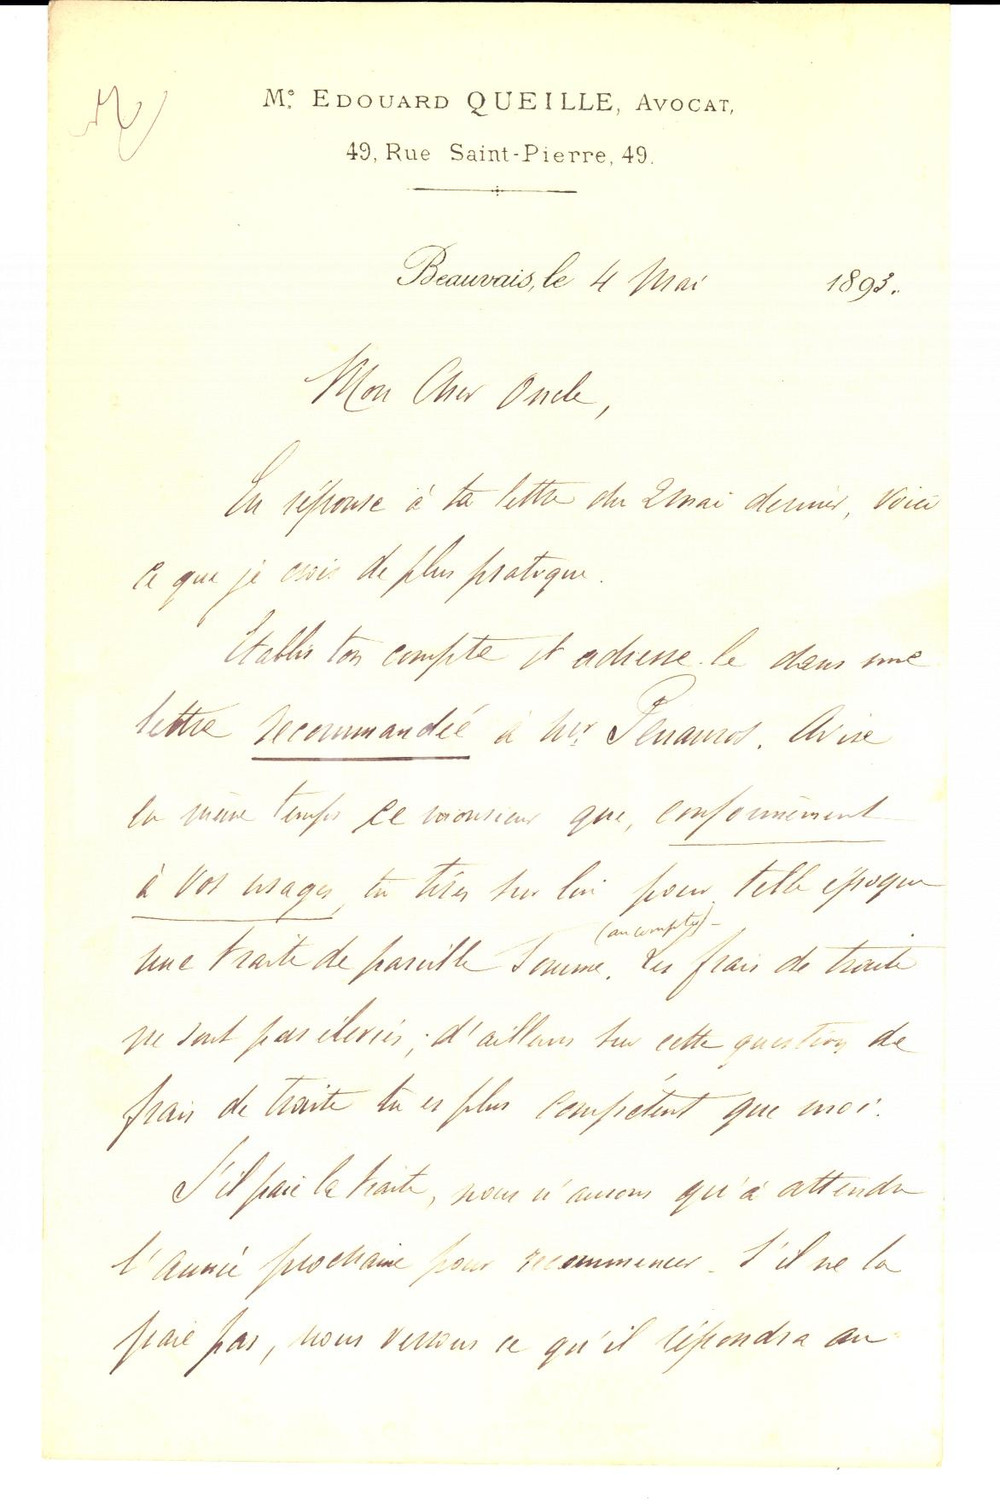 Me. EDOUARD QUEILLE, AVOCAT,
49, Rue Saint-Pierre, 49.
Beauvais, le 4 Mai 1893.
Mon Cher Oncle,
En réponse à ta lettre du 2 mai dernier, voici
ce que je crois de plus pratique.
Etablis ton compte et adresse-le dans une
lettre recommandée à Mr. . Avise
en même temps ce monsieur que, conformément
à vos usages, tu tires sur lui pour telle époque
(au compte)
une traite de pareille somme. Les frais de traite
ne sont pas élevés ; d'ailleurs sur cette question de
frais de traite tu es plus compétent que moi.
S'il paie la traite, nous n'aurons qu'à attendre
l'année prochaine pour recommencer. S'il ne la
paie pas, nous verrons ce qu'il répondra au